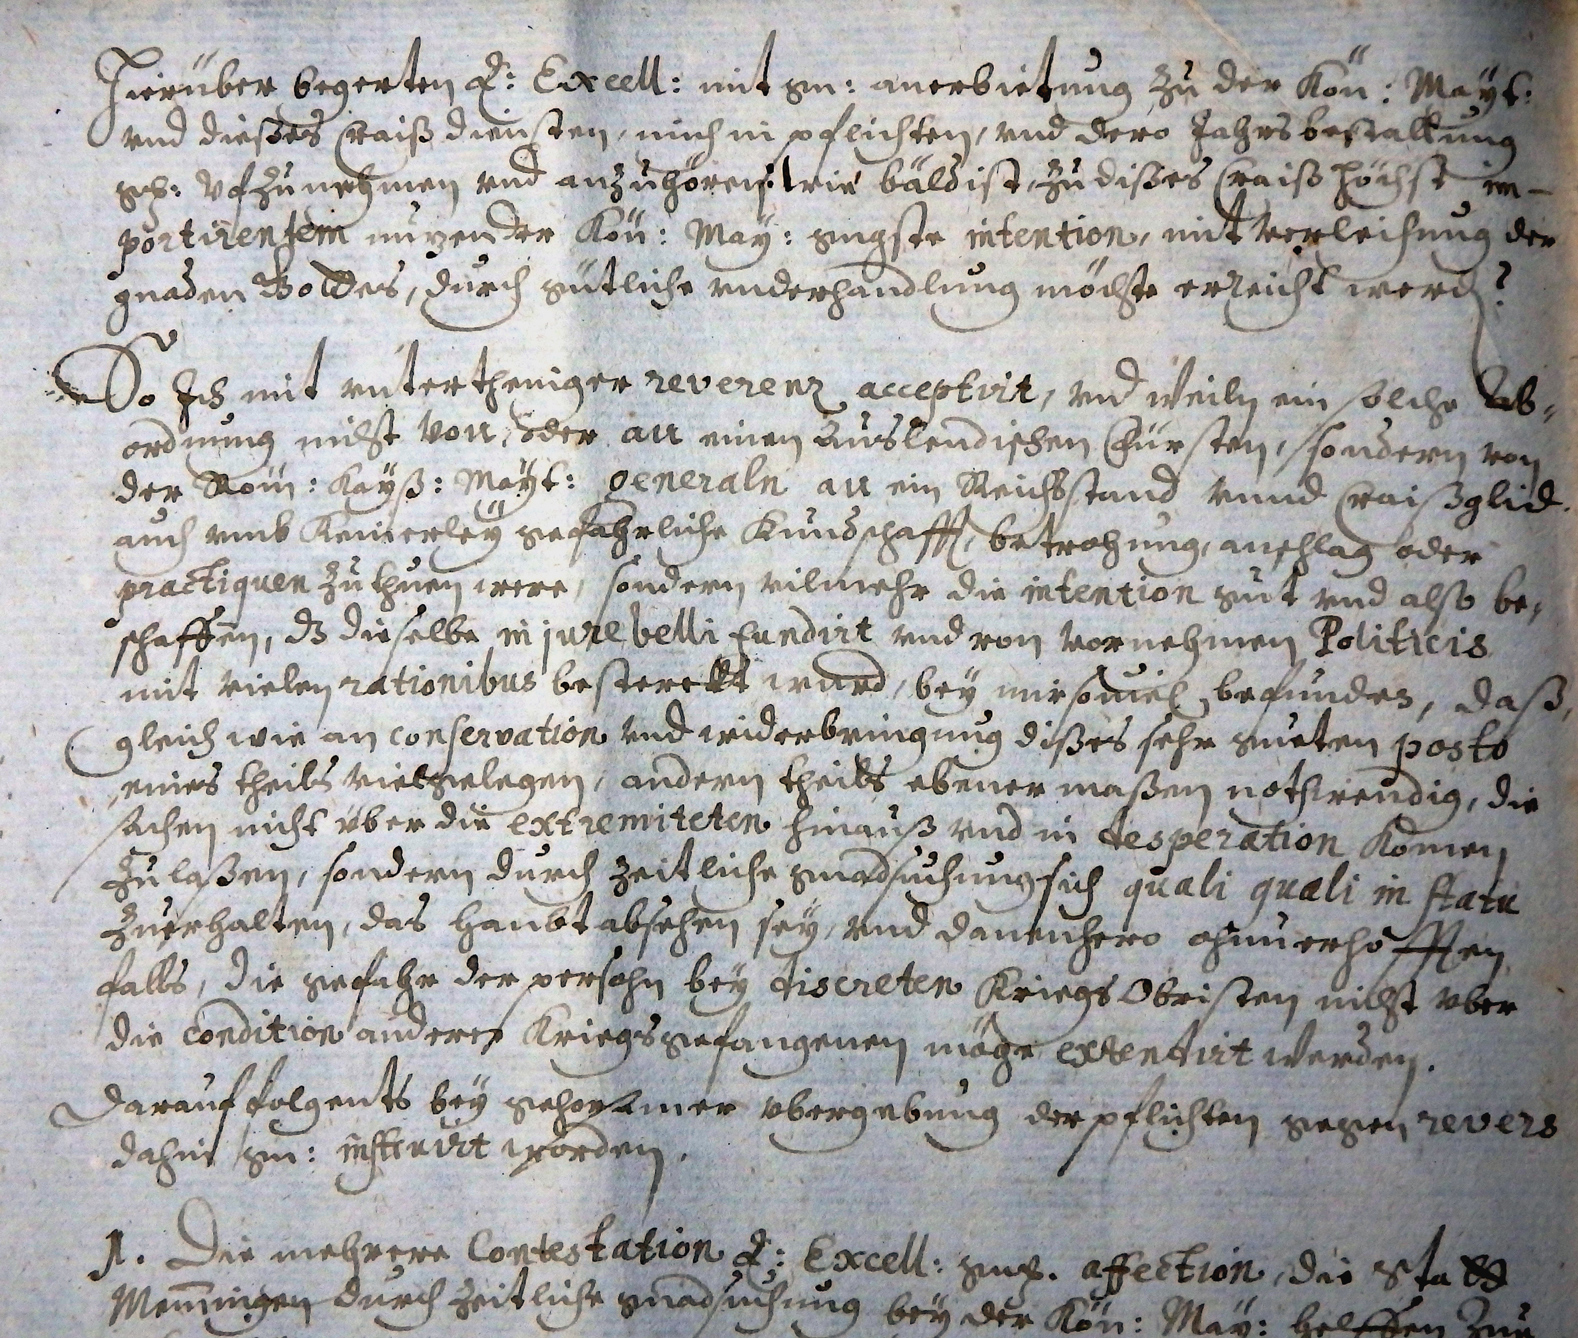 Hierüber begerten E: Excell: mit gn: anerbietung zu der Kön: Mayt:
vnd dießes Craiß diensten, mich in pflichten, vnd dero Jahrs bestallung
gg: Vfzunehmen vnd anzuhören, wie bäldist, zu dißes Craiß höchst im-
portirendem nuzen der Kön: May: gngste intention, mit verleihung der
gnaden Gottes, durch gütliche vnderhandlung möchte erreicht werd?
So Ich mit vntertheniger reverenz acceptirt, vnd weiln ein solche Ab-
ordnung nicht von, oder an einen Auslendischen Fürsten, sondern von
der Röm: Kayß: Mayt: generaln an ein Reichsstand vnnd Craißglid.
auch vmb keinerley gefährliche Kundschafft, betrohung, anschlag oder
practiquen zu thuen were, sondern vilmehr die intention gut vnd also be-
schaffen, dz dieselbe in jure belli fundirt vnd von vornehmen Politicis
mit vielen rationibus besterckt wurd, bey mir souiel befunden, daß,
gleich wie an conservation vnd widerbringung dißes sehr gueten posto
eines theils viel gelegen, andern theils ebener maßen nothwendig, die
sachen nicht über die extremiteten hinauß vnd in desperation komen
zulaßen, sondern durch zeitliche gnadsuchung sich quali quali in statu
zuerhalten, das haubtabsehen sey, vnd dannenhero ohnuerhofften
falls, die gefahr der persohn bey discreten Kriegs Obristen nicht vber
die condition anderer Kriegsgefangenen möge extendirt werden.
Darauf folgents bey gehorsamer vbergebung der pflichten gegen revers
dahin gn: instruirt worden.
1. Die mehrere Contestation E: Excell: gng. affection, die Statt
Memmingen durch zeitliche gnadsuchung bey der Kön: May: helffen zue